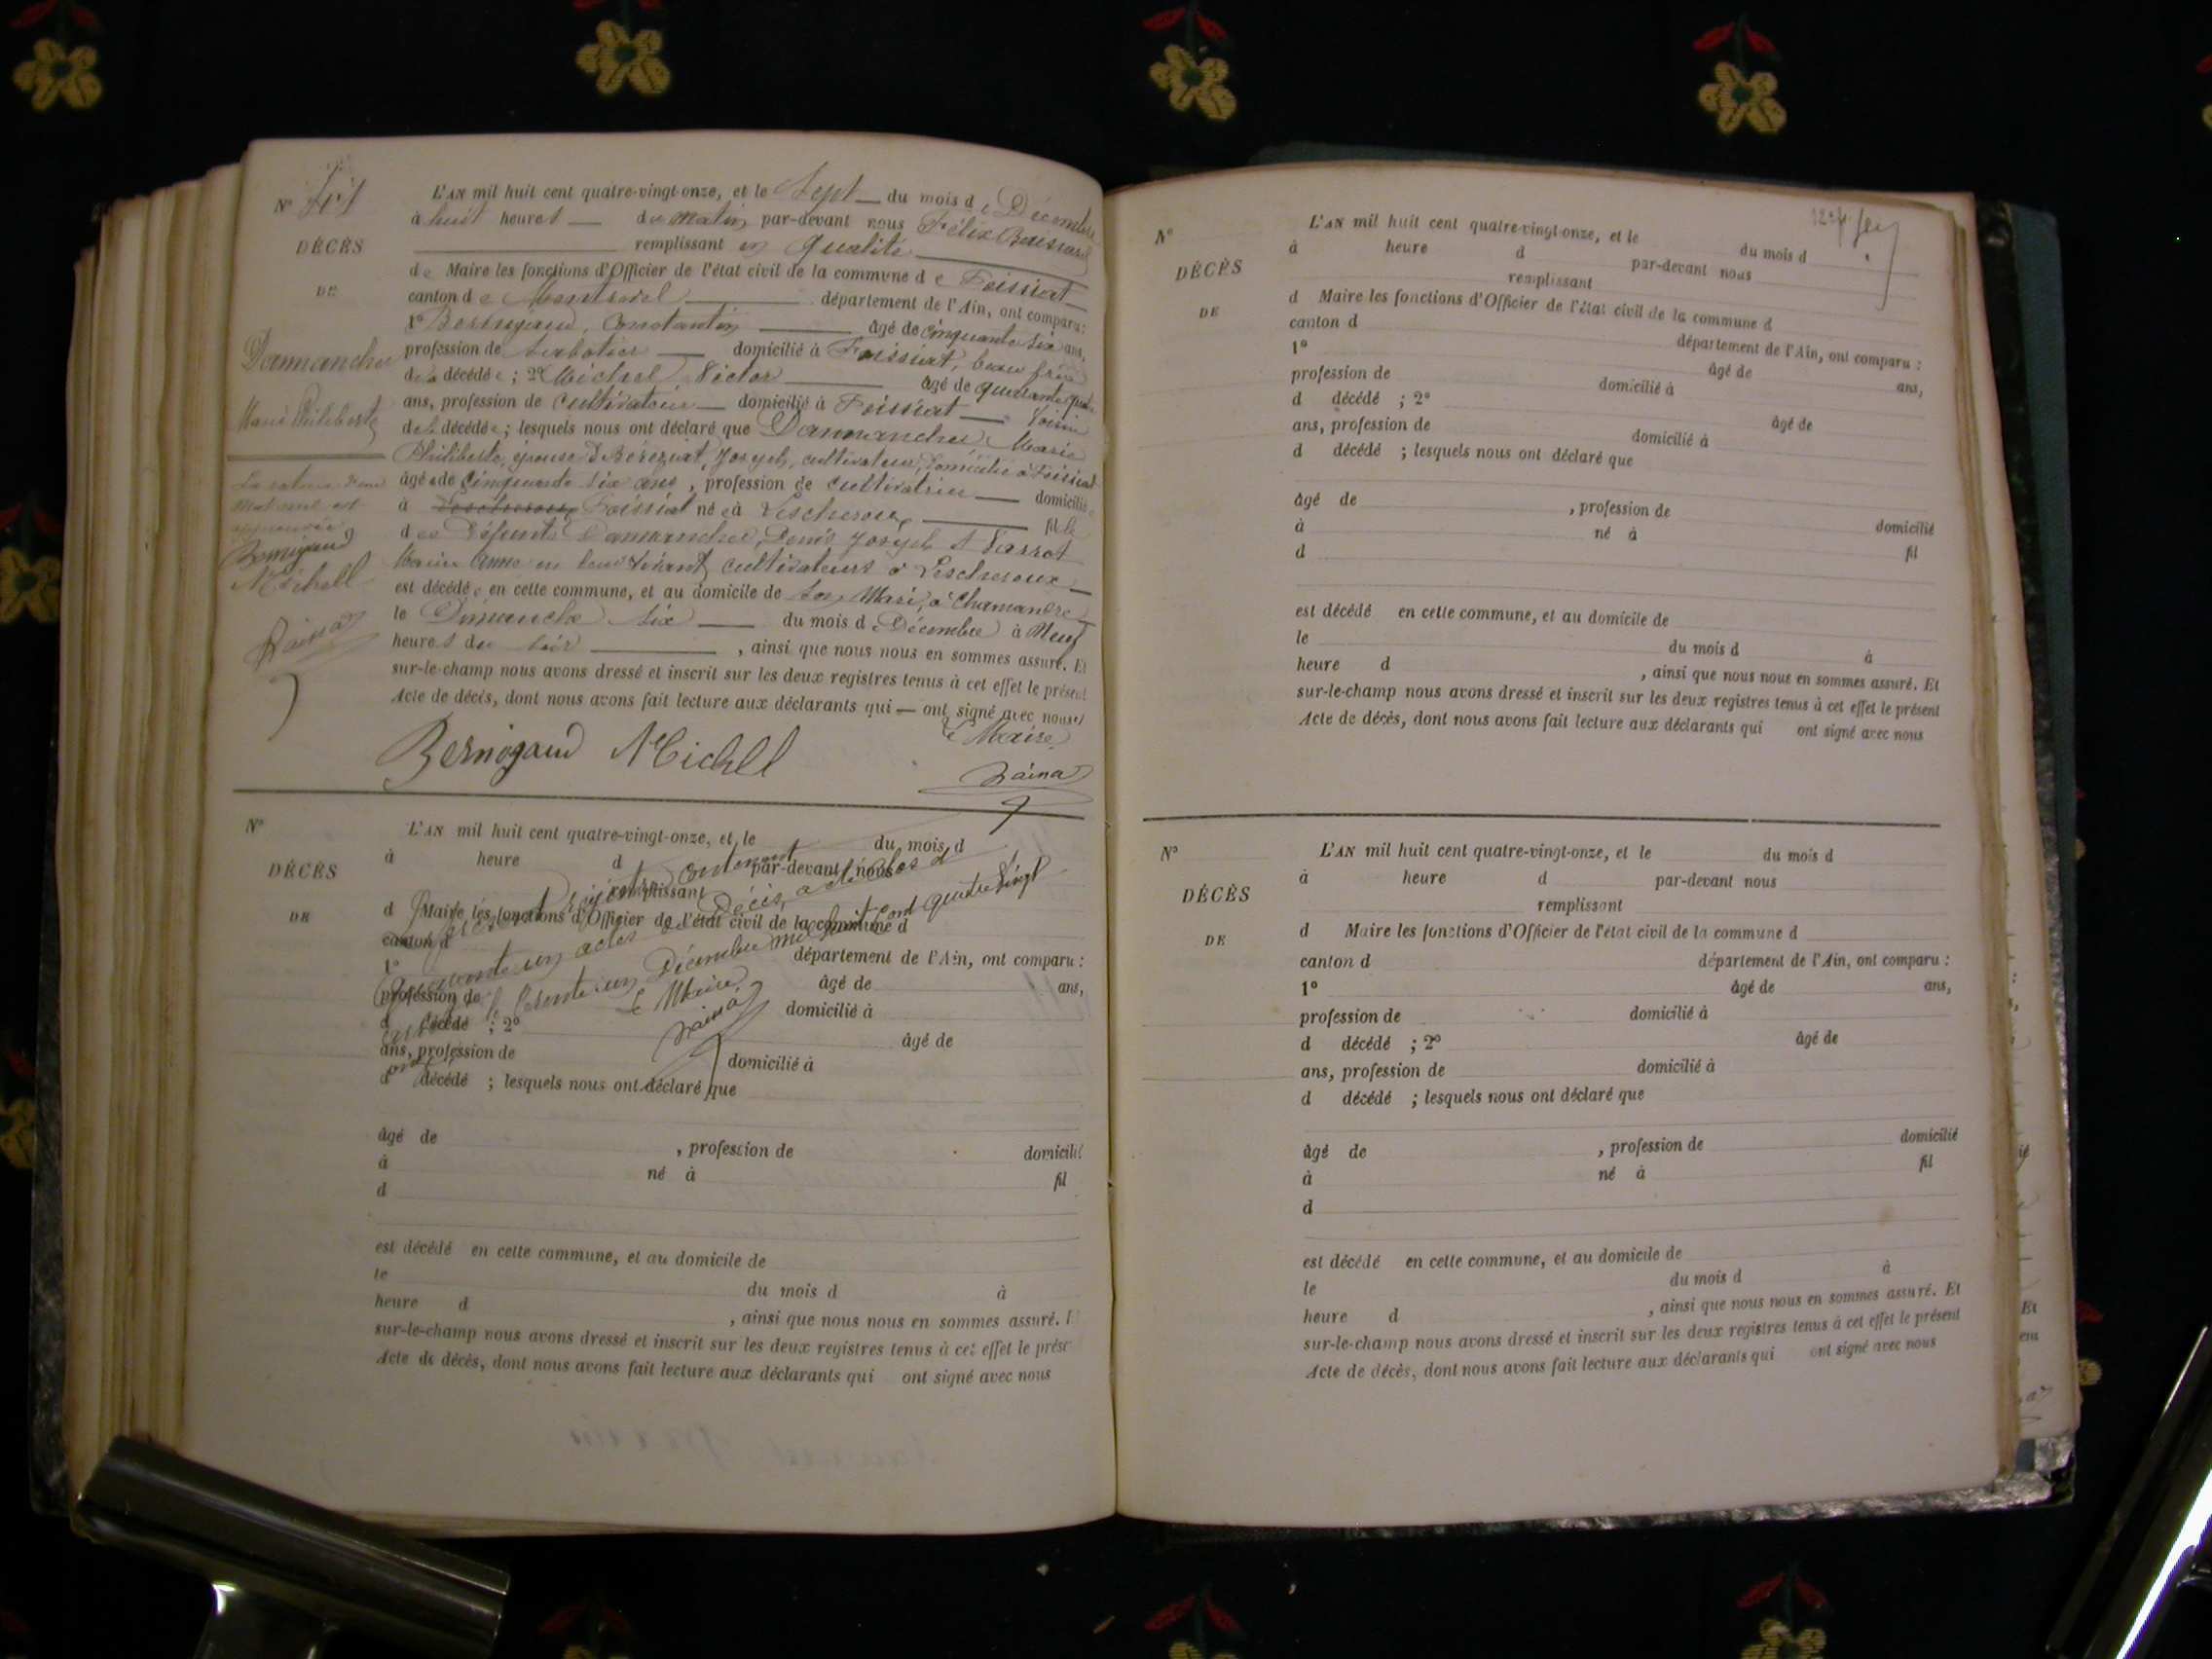 N° 41
DÉCÈS
DE
Dammancher
Marie Philiberte
La rature d'un
mot nul est
approuvée
Bernigaud
Michell
L'AN mil huit cent quatre-vingt-onze, et le Sept du mois de Décembre
à huit heures du matin par-devant nous Félix
remplissant en qualité
de Maire les fonctions d'Officier de l'état civil de la commune de Foissiat
canton de Montrevel département de l'Ain, ont comparu :
1° Bernigaud, Constantin âgé de cinquante six ans,
profession de Sabotier domicilié à Foissiat, beau frère
de la décédée ; 2° Michel, Victor âgé de quarante
ans, profession de cultivateur domicilié à Foissiat voisin
de la décédée ; lesquels nous ont déclaré que Dammancher Marie
Philiberte, épouse d Bérezuat, Joseph, cultivateur, domicilié à Foissiat
âgée de cinquante six ans, profession de cultivatrice domiciliée
à Foissiat née à Lescheroux fille
des défunts Dammancher, Denis Joseph et
Marie Anne en leur vivant cultivateurs à Lescheroux
est décédée en cette commune, et au domicile de son Mari, à Chamandre
le Dimanche six du mois de Décembre à Neuf
heures du soir, ainsi que nous nous en sommes assuré. Et
sur-le-champ nous avons dressé et inscrit sur les deux registres tenus à cet effet le présent
Acte de décès, dont nous avons fait lecture aux déclarants qui ont signé avec nous
Le Maire
Bernigaud Michell
N°
DÉCÈS
DE
L'AN mil huit cent quatre-vingt-onze, et le du mois d
à heure d par-devant nous
remplissant
d Maire les fonctions d'Officier de l'état civil de la commune d
canton d département de l'Ain, ont comparu :
1° âgé de ans,
profession de domicilié à
d décédé ; 2° âgé de
ans, profession de domicilié à
d décédé ; lesquels nous ont déclaré que
Le présent Registre contenant
Décès, a été clos
quarante un actes de
et le trente un Décembre mil huit cent quatre vingt
onze
Le Maire
âgé de , profession de domicilié
à né à fil
d
est décédé en cette commune, et au domicile de
le du mois d à
heure d , ainsi que nous nous en sommes assuré. E
sur-le-champ nous avons dressé et inscrit sur les deux registres tenus à cet effet le prése
Acte de décès, dont nous avons fait lecture aux déclarants qui ont signé avec nous
N°
DÉCÈS
DE
L'AN mil huit cent quatre-vingt-onze, et le du mois d
à heure d par-devant nous
remplissant
d Maire les fonctions d'Officier de l'état civil de la commune d
canton d département de l'Ain, ont comparu :
1° âgé de ans,
profession de domicilié à
d décédé ; 2° âgé de
ans, profession de domicilié à
d décédé ; lesquels nous ont déclaré que
âgé de , profession de domicilié
à né à fil
d
est décédé en cette commune, et au domicile de
le du mois d à
heure d , ainsi que nous nous en sommes assuré. Et
sur-le-champ nous avons dressé et inscrit sur les deux registres tenus à cet effet le présent
Acte de décès, dont nous avons fait lecture aux déclarants qui ont signé avec nous
N°
DÉCÈS
DE
L'AN mil huit cent quatre-vingt-onze, et le du mois d
à heure d par-devant nous
remplissant
d Maire les fonctions d'Officier de l'état civil de la commune d
canton d département de l'Ain, ont comparu :
1° âgé de ans,
profession de domicilié à
d décédé ; 2° âgé de
ans, profession de domicilié à
d décédé ; lesquels nous ont déclaré que
âgé de , profession de domicilié
à né à fil
d
est décédé en cette commune, et au domicile de
le du mois d à
heure d , ainsi que nous nous en sommes assuré. Et
sur-le-champ nous avons dressé et inscrit sur les deux registres tenus à cet effet le présent
Acte de décès, dont nous avons fait lecture aux déclarants qui ont signé avec nous